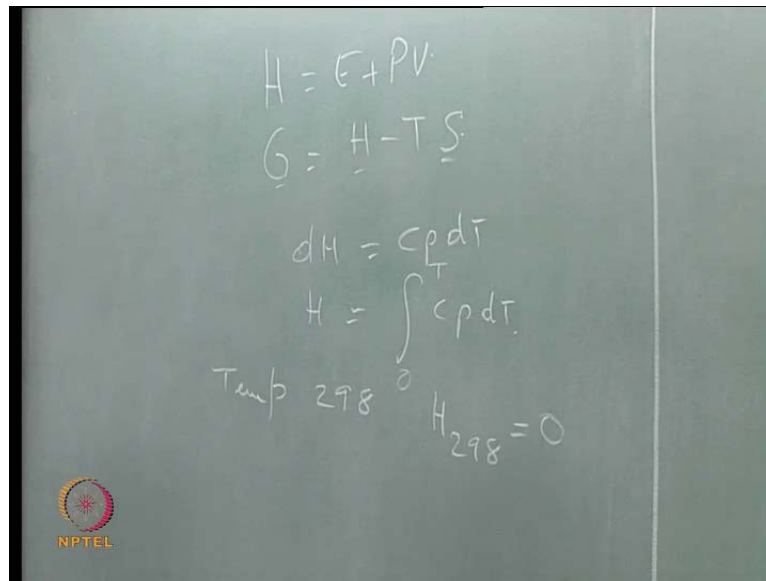 H = E + PV.
G = H - TS.
dH = CpdT
H = ∫₀ᵀ CpdT.
Temp 298 H₂₉₈ = 0
NPTEL